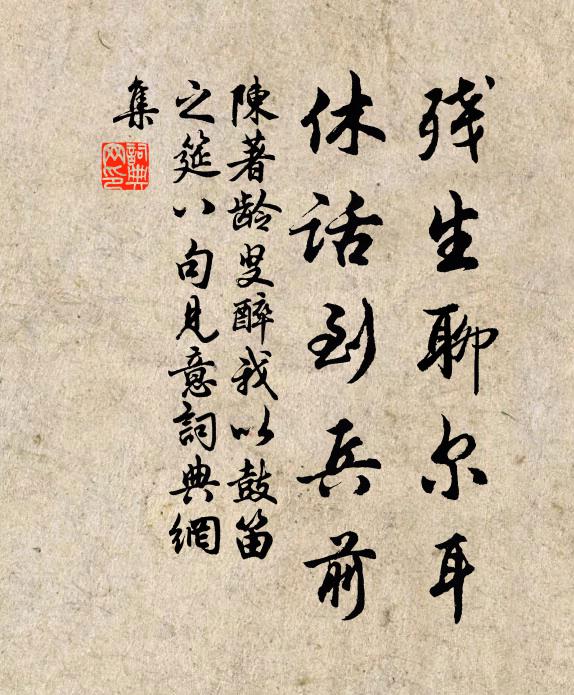 残生聊尔耳
休话到兵前
陳著龄叟醉我以鼓笛
之筵八句見意詞典網
集
詞典網印